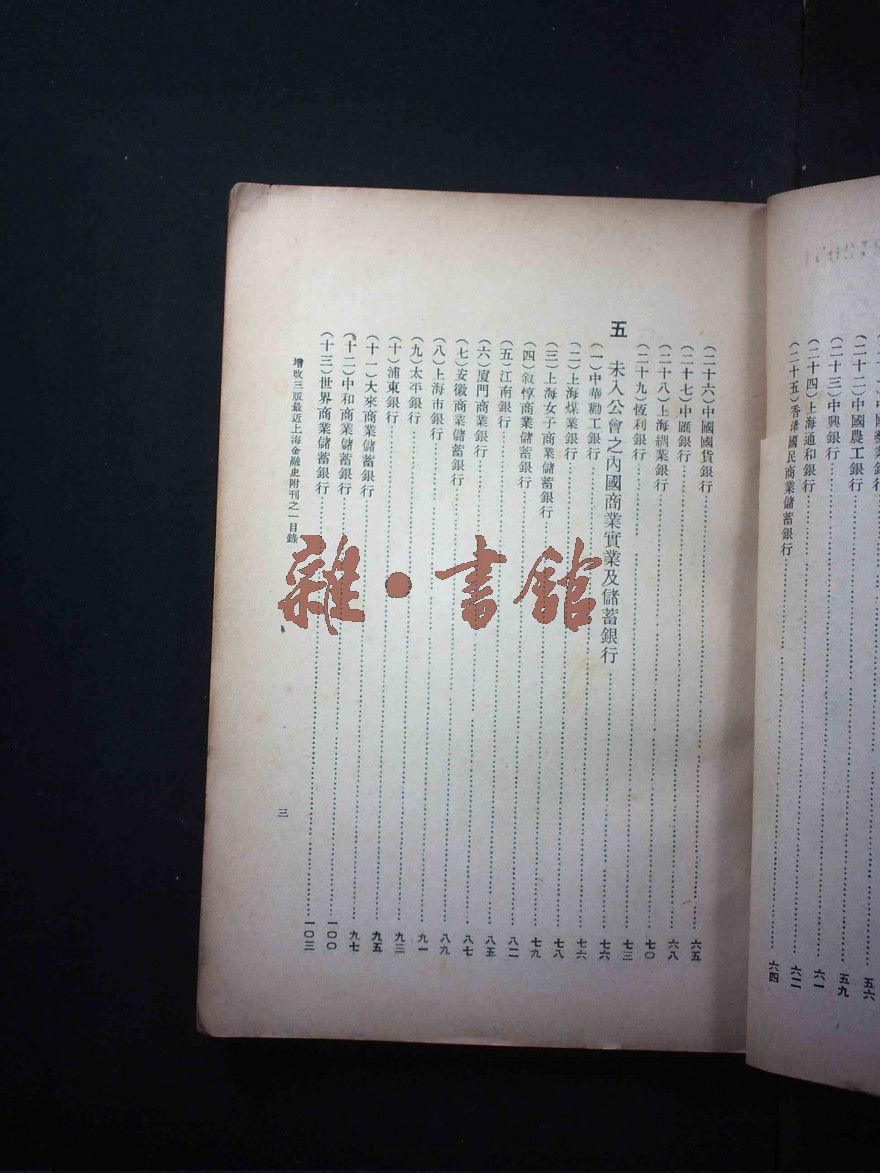 (二十二)中國農工銀行……五九
(二十三)中興銀行……六一
(二十四)上海通和銀行……六二
(二十五)香港國民商業儲蓄銀行……六四
(二十六)中國國貨銀行……六五
(二十七)中匯銀行……六八
(二十八)上海綢業銀行……七〇
(二十九)恆利銀行……七三
五 未入公會之內國商業實業及儲蓄銀行……七六
(一)中華勸工銀行……七六
(二)上海煤業銀行……七八
(三)上海女子商業儲蓄銀行……七九
(四)敘惇商業儲蓄銀行……八二
(五)江南銀行……八五
(六)廈門商業銀行……八七
(七)安徽商業儲蓄銀行……八九
(八)上海市銀行……九一
(九)太平銀行……九三
(十)浦東銀行……九五
(十一)大來商業儲蓄銀行……九七
(十二)中和商業儲蓄銀行……一〇〇
(十三)世界商業儲蓄銀行……一〇三
增改三版最近上海金融史附刊之一目錄
三
雜·書館